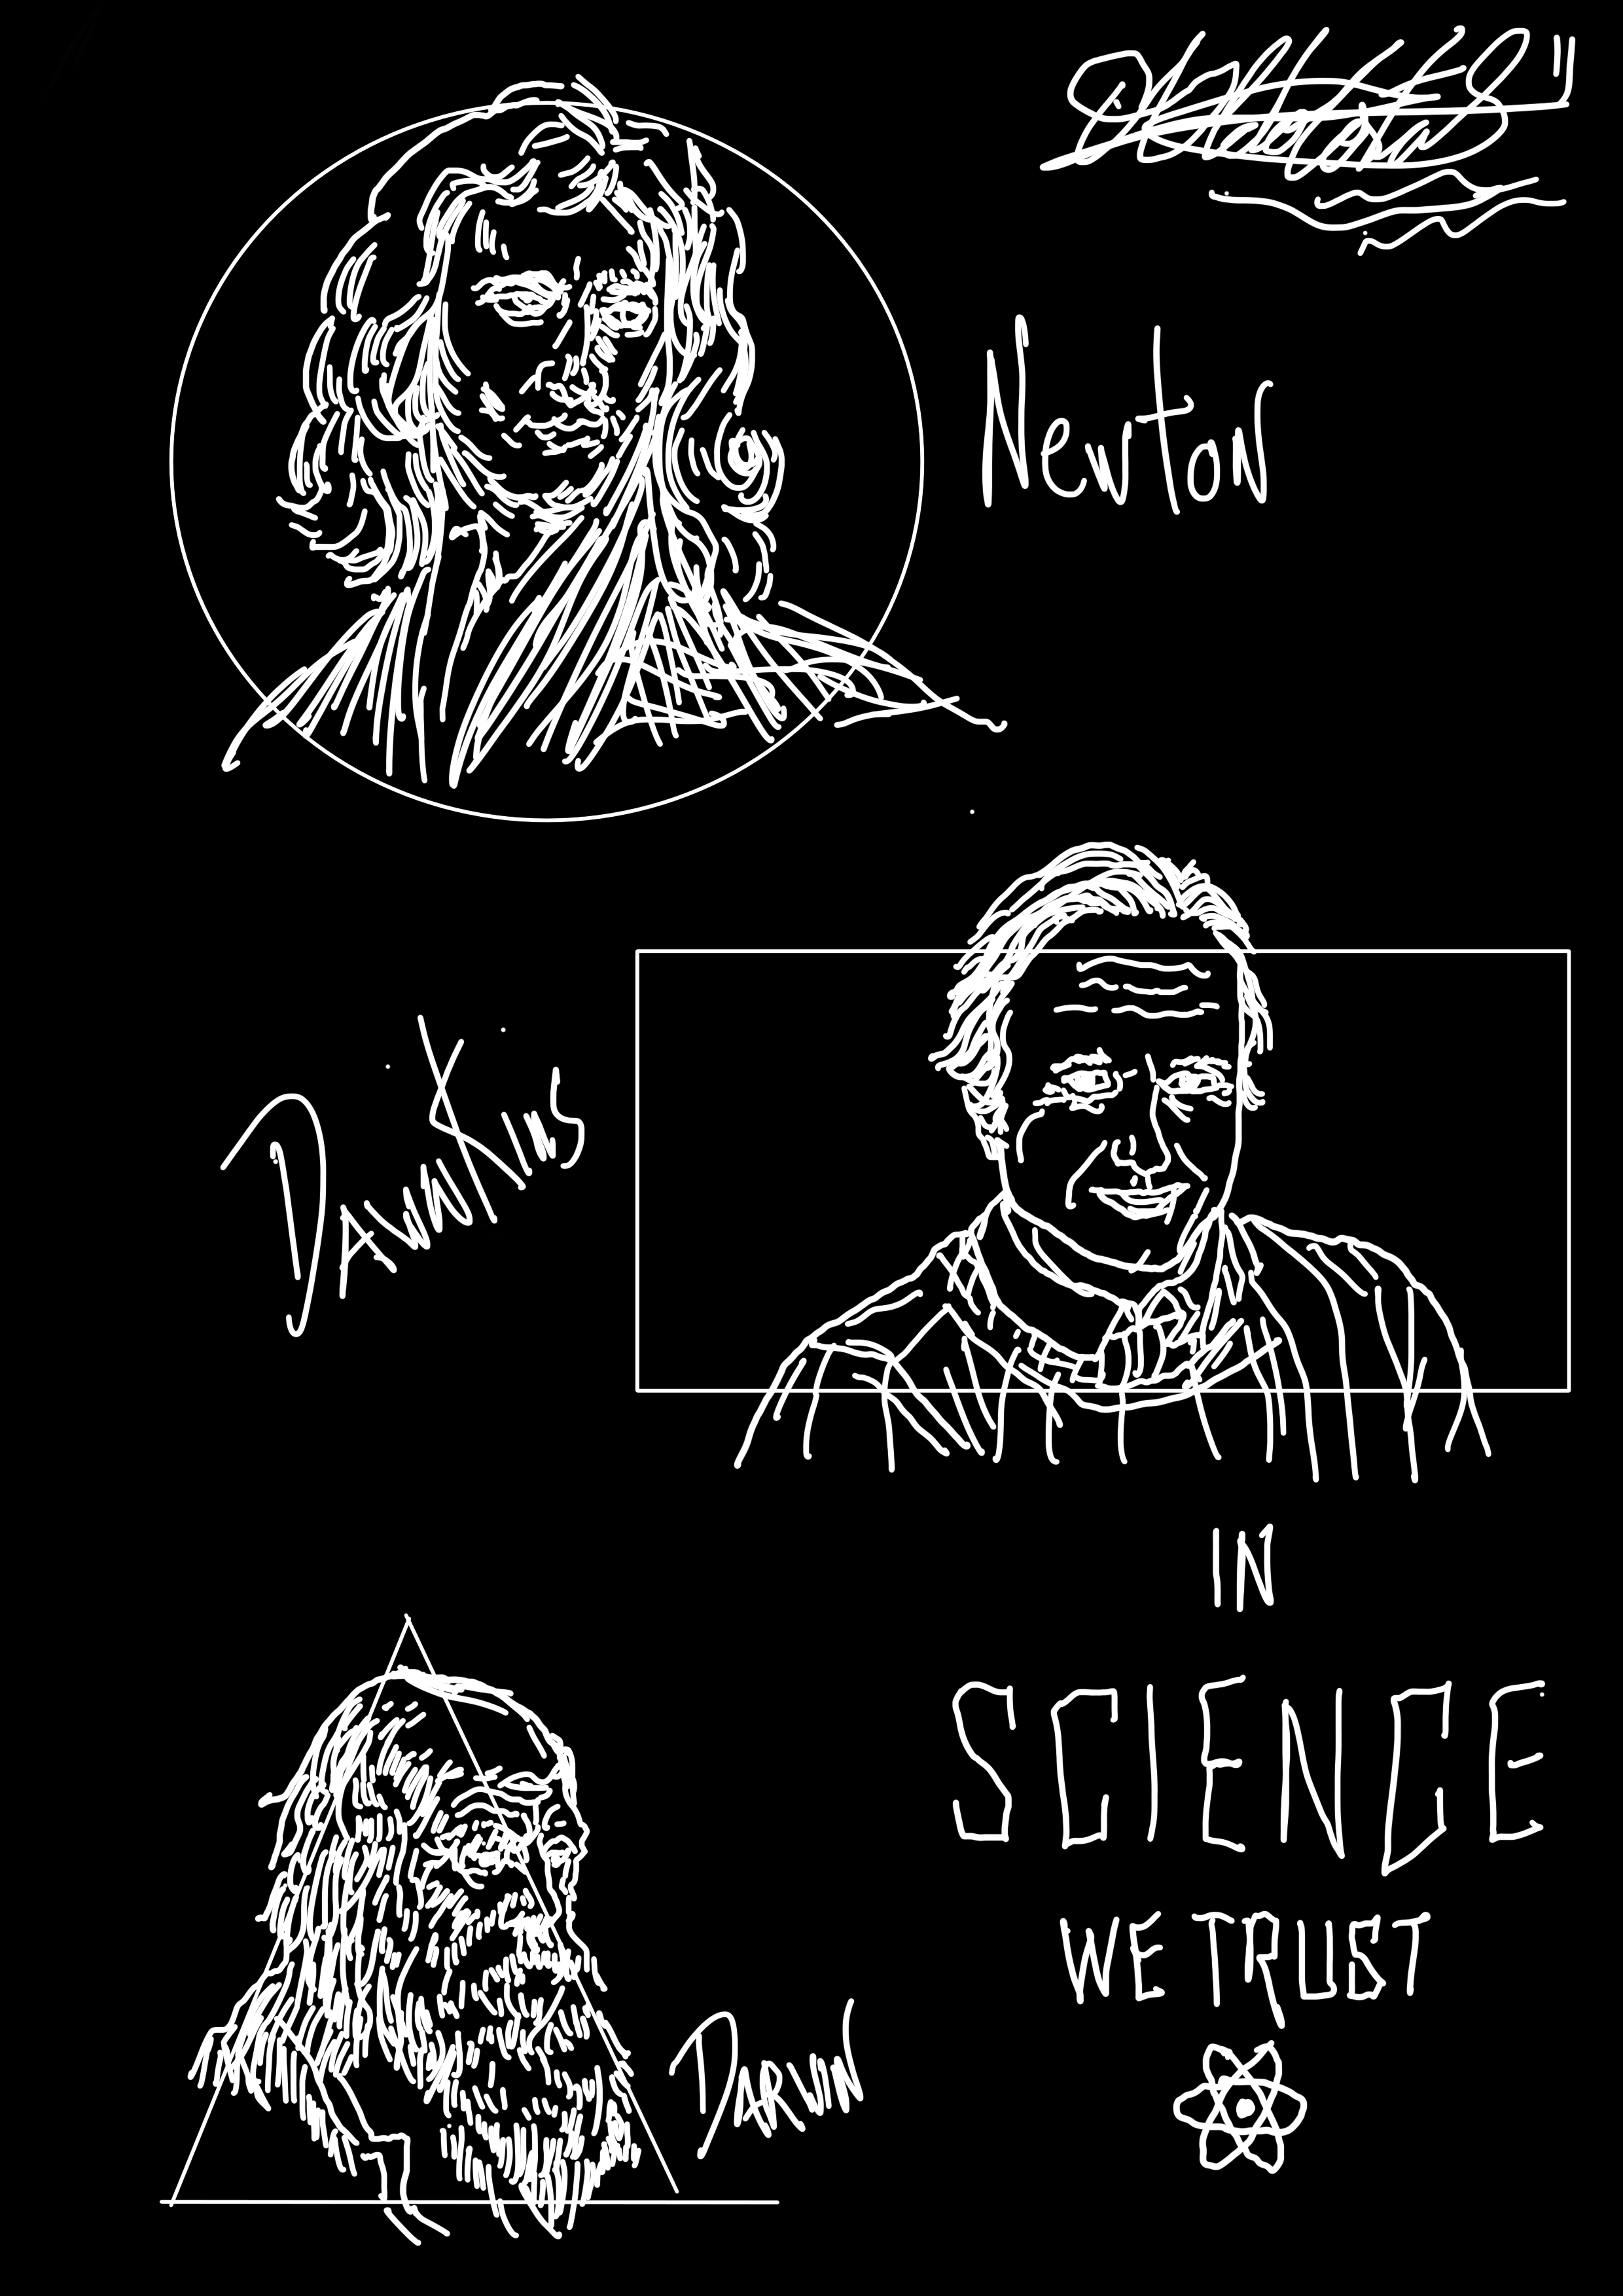 Newton
DAWKINS
IN
SCIENCE
WE TRUST
DARWIN